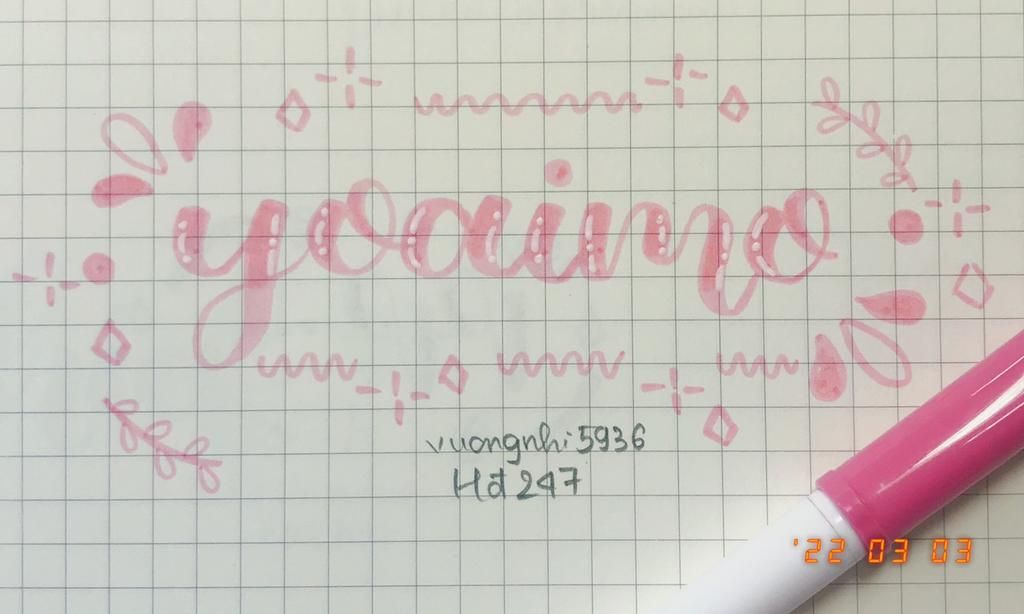 yooimo
vuongnhi5936
Hđ247
'22 03 03